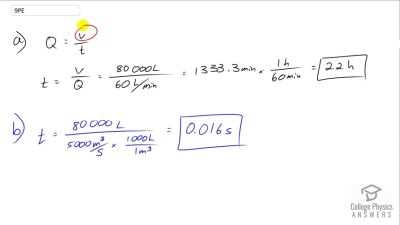 9PE
a) Q = V/t
t = V/Q = 80000L/60 L/min = 1333.3min × 1h/60min = 22h
b) t = 80000L/5000 m³/s × 1000L/1m³ = 0.016s
College Physics
ANSWERS